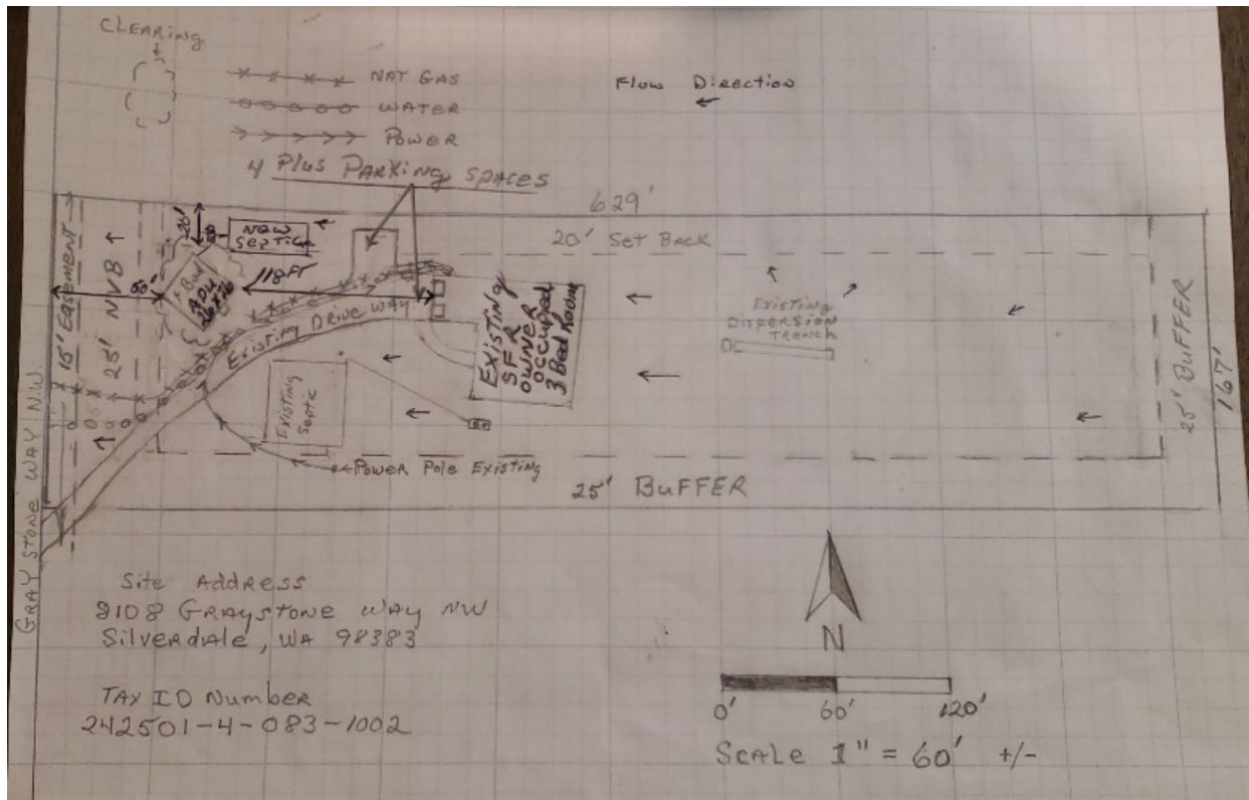 CLEARING
NAT GAS
WATER
POWER
Flow Direction
4 Plus Parking Spaces
629'
20' Set Back
26'
New
Septic
118 FT
15' Easement
25' NVB
ADU
Existing Drive Way
Existing
SFR
Owner
Occupied
3 Bed Room
Existing
Dispersion
Trench
25' BUFFER
167'
Existing
Septic
Power Pole Existing
25' BUFFER
GRAYSTONE WAY N.W.
Site Address
8108 GRAYSTONE WAY NW
Silverdale, WA 98383
TAX ID Number
242501-4-083-1002
N
0' 60' 120'
SCALE 1" = 60' +/-